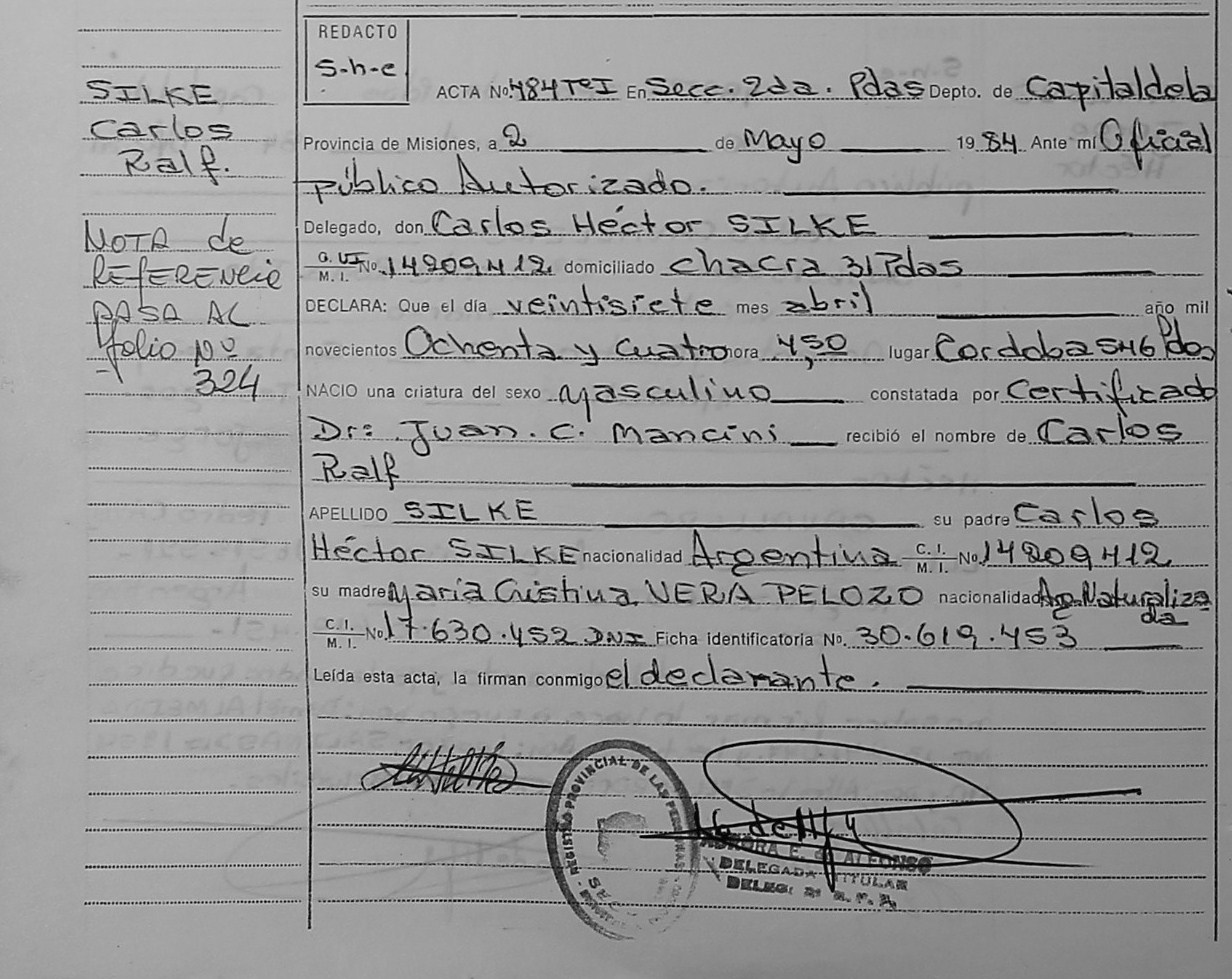 SILKE
Carlos
Ralf.
NOTA de
REFERENCIA
PASA AL
folio Nº
324
REDACTO
S-h-e
ACTA No. 484 TºI En Secc. 2da. Pdas Depto. de Capital de la
Provincia de Misiones, a 2 de Mayo 19 84 Ante mí Oficial
público Autorizado.
Delegado, don Carlos Héctor SILKE
C. I. M. I. No. 14209412 domiciliado chacra 31 Pdas
DECLARA: Que el día veintisiete mes abril año mil
novecientos Ochenta y Cuatro hora 4,50 lugar Cordoba 546 Pdas
NACIO una criatura del sexo Masculino constatada por Certificado
Dr: Juan. C. Mancini recibió el nombre de Carlos
Ralf
APELLIDO SILKE su padre Carlos
Héctor SILKE nacionalidad Argentina C. I. M. I. No. 14209412
su madre María Cristina VERA PELOZO nacionalidad Arg. Naturaliza
da
C. I. M. I. No. 17.630.452 DNI Ficha identificatoria No. 30.619.453
Leída esta acta, la firman conmigo el declarante.
REGISTRO PROVINCIAL DE LAS PERSONAS
AURORA E. de ALFONSO
DELEGADA TITULAR
DELEG: 2ª R. P. P.